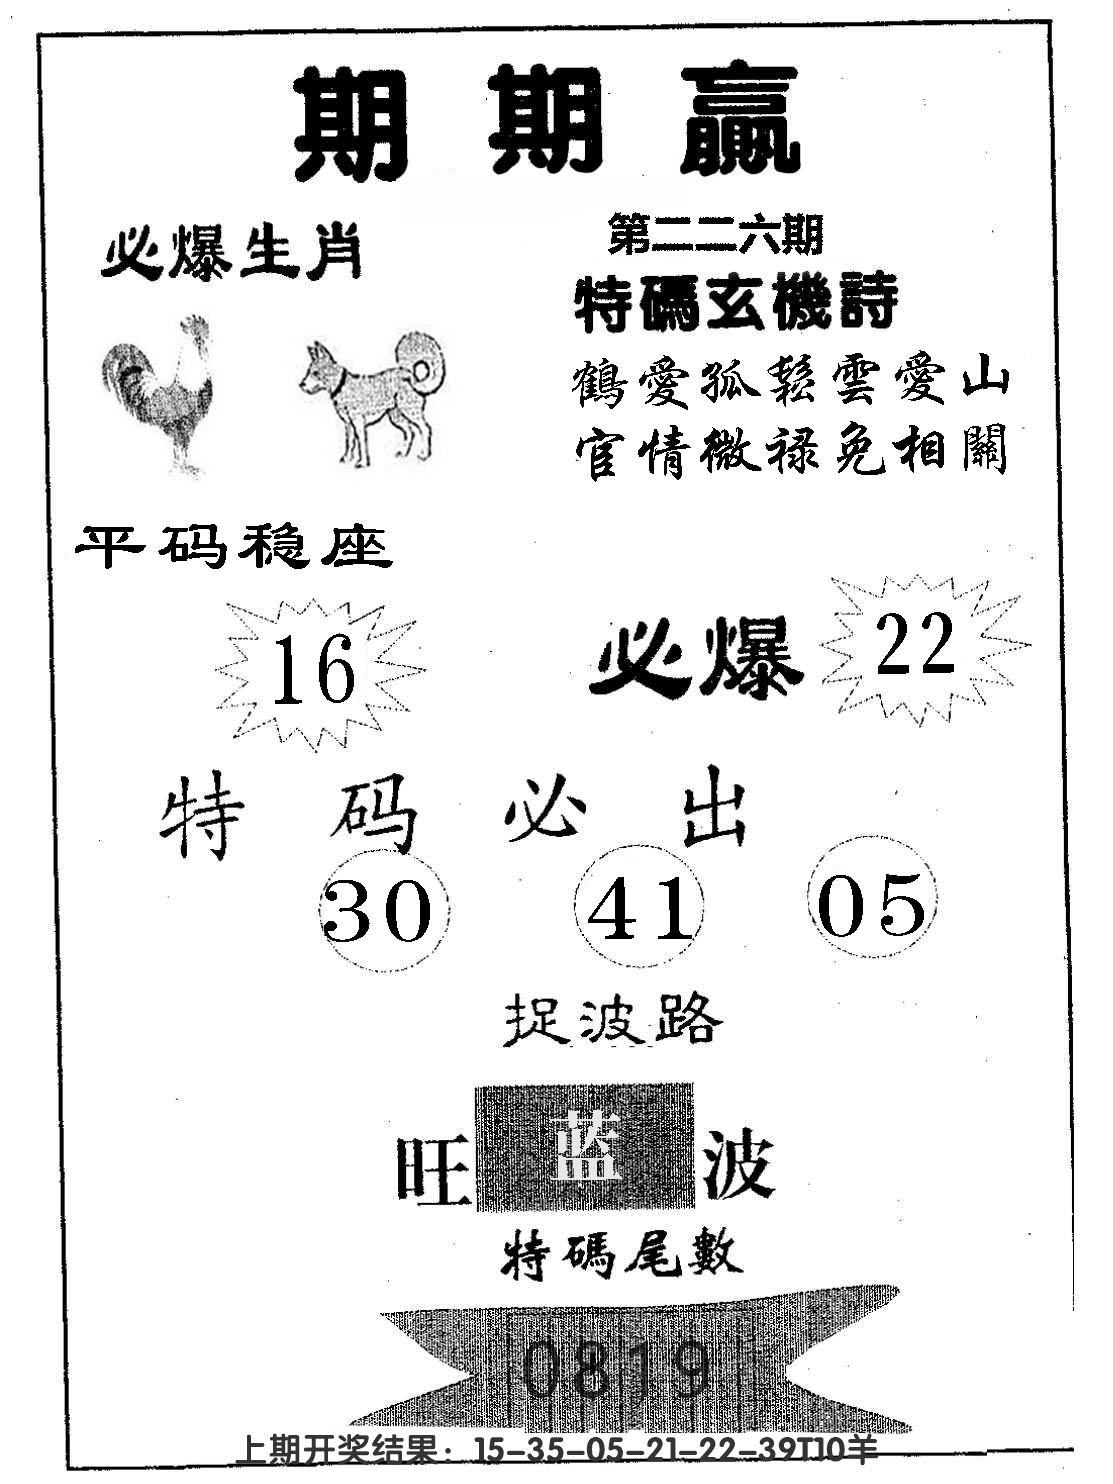 期期贏
必爆生肖
第二二六期
特碼玄機詩
鶴愛孤鬆雲愛山
官情微禄免相關
平码稳座
16
必爆
22
特码必出
30 41 05
捉波路
旺蓝波
特碼尾數
0819
上期开奖结果：15-35-05-21-22-39T10羊